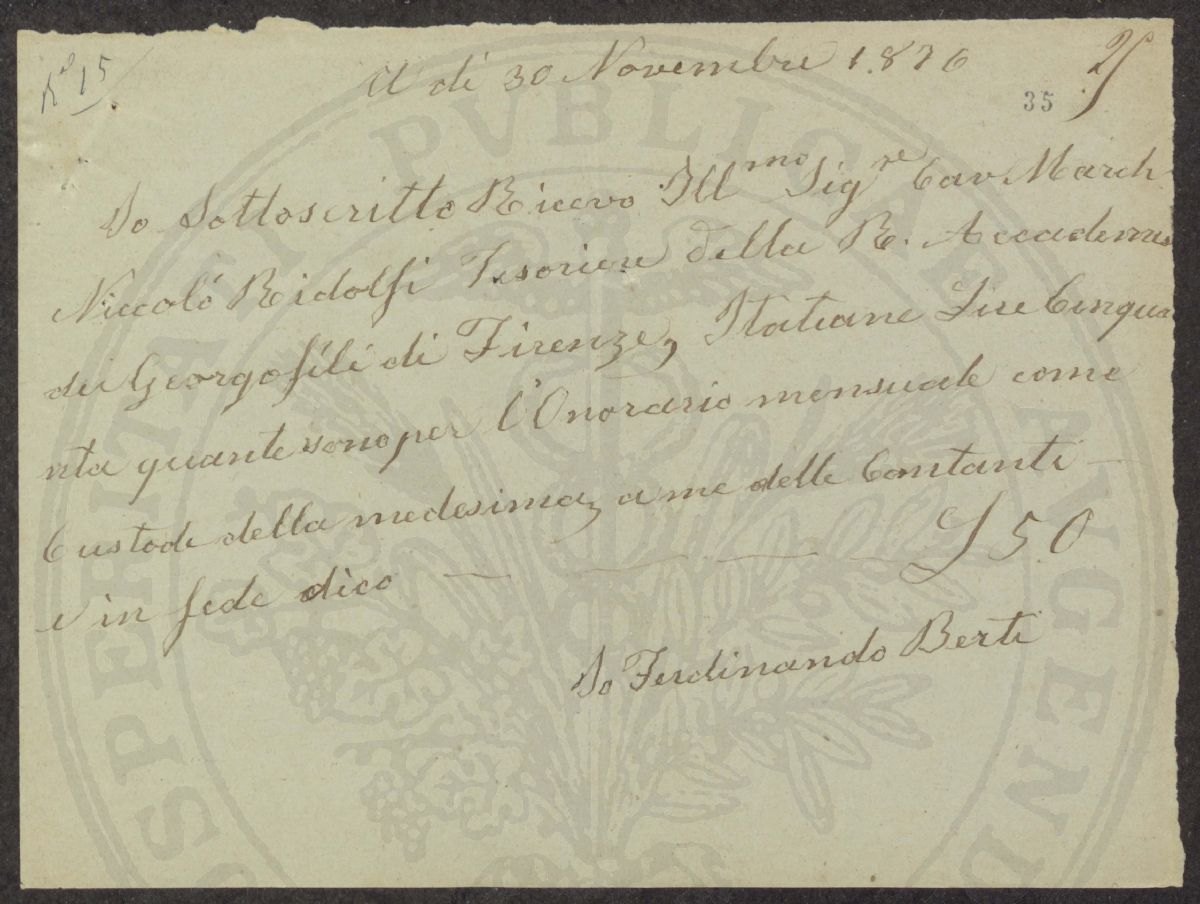 Nº 15
A di 30 Novembre 1876
35
Io Sottoscritto Ricevo Ill.mo Sig.re Cav March
Niccoló Ridolfi Tesoriere della R. Accademia
dei Georgofili di Firenze, Italiane Lire Cinqua
nta quante sono per l'Onorario mensuale come
Custode della medesima, a me delle Contanti
e in fede dico — L 50
Io Ferdinando Berti
PROSPERITATI PVBLICAE AVGENDAE